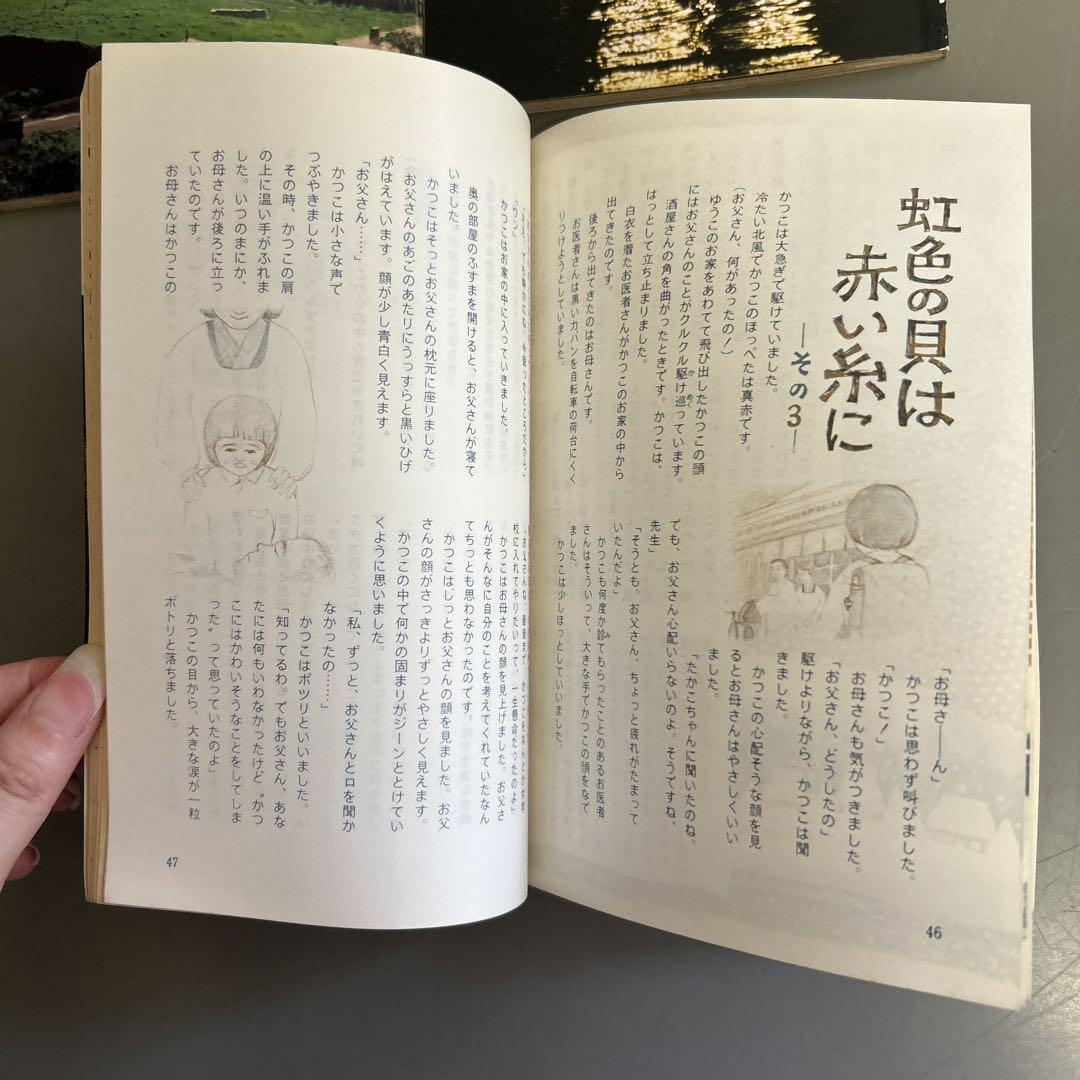 虹色の貝は
赤い糸に
―その3―
かつこは大急ぎで駆けていました。
冷たい北風でかつこのほっぺたは真赤です。
(お父さん、何があったの!)
ゆうこのお家をあわてて飛び出したかつこの頭
にはお父さんのことがクルクル駆け巡っています。
酒屋さんの角を曲がったときです。かつこは、
はっとして立ち止まりました。
白衣を着たお医者さんがかつこのお家の中から
出てきたのです。
後ろから出てきたのはお母さんです。
お医者さんは黒いカバンを自転車の荷台にくく
りつけようとしていました。
「お母さ――ん」
かつこは思わず叫びました。
「かつこ!」
お母さんも気がつきました。
「お父さん、どうしたの」
駆けよりながら、かつこは聞
きました。
かつこの心配そうな顔を見
るとお母さんはやさしくいい
ました。
「たかこちゃんに聞いたのね。
でも、お父さん心配いらないのよ。そうですね、
先生」
「そうとも。お父さん、ちょっと疲れがたまって
いたんだよ」
かつこも何度か診てもらったことのあるお医者
さんはそういって、大きな手でかつこの頭をなて
ました。
かつこは少しほっとしていいました。
かつこはお家の中に入っていきました。
奥の部屋のふすまを開けると、お父さんが寝て
いました。
かつこはそっとお父さんの枕元に座りました。
お父さんのあごのあたりにうっすらと黒いひげ
がはえています。顔が少し青白く見えます。
「お父さん……」
かつこは小さな声で
つぶやきました。
その時、かつこの肩
の上に温い手がふれま
した。いつのまにか、
お母さんが後ろに立っ
ていたのです。
お母さんはかつこの
校に入れてやりたいって、一生懸命だったのよ」
かつこはお母さんの顔を見上げました。お父さ
んがそんなに自分のことを考えてくれていたなん
てちっとも思わなかったのです。
かつこはじっとお父さんの顔を見ました。お父
さんの顔がさっきよりずっとやさしく見えます。
かつこの中で何かの固まりがジーンととけてい
くように思いました。
「私、ずっと、お父さんと口を聞か
なかったの……」
かつこはポツリといいました。
「知ってるわ。でもお父さん、あな
たには何もいわなかったけど〝かつ
こにはかわいそうなことをしてしま
った〟って思っていたのよ」
かつこの目から、大きな涙が一粒
ポトリと落ちました。
47
46